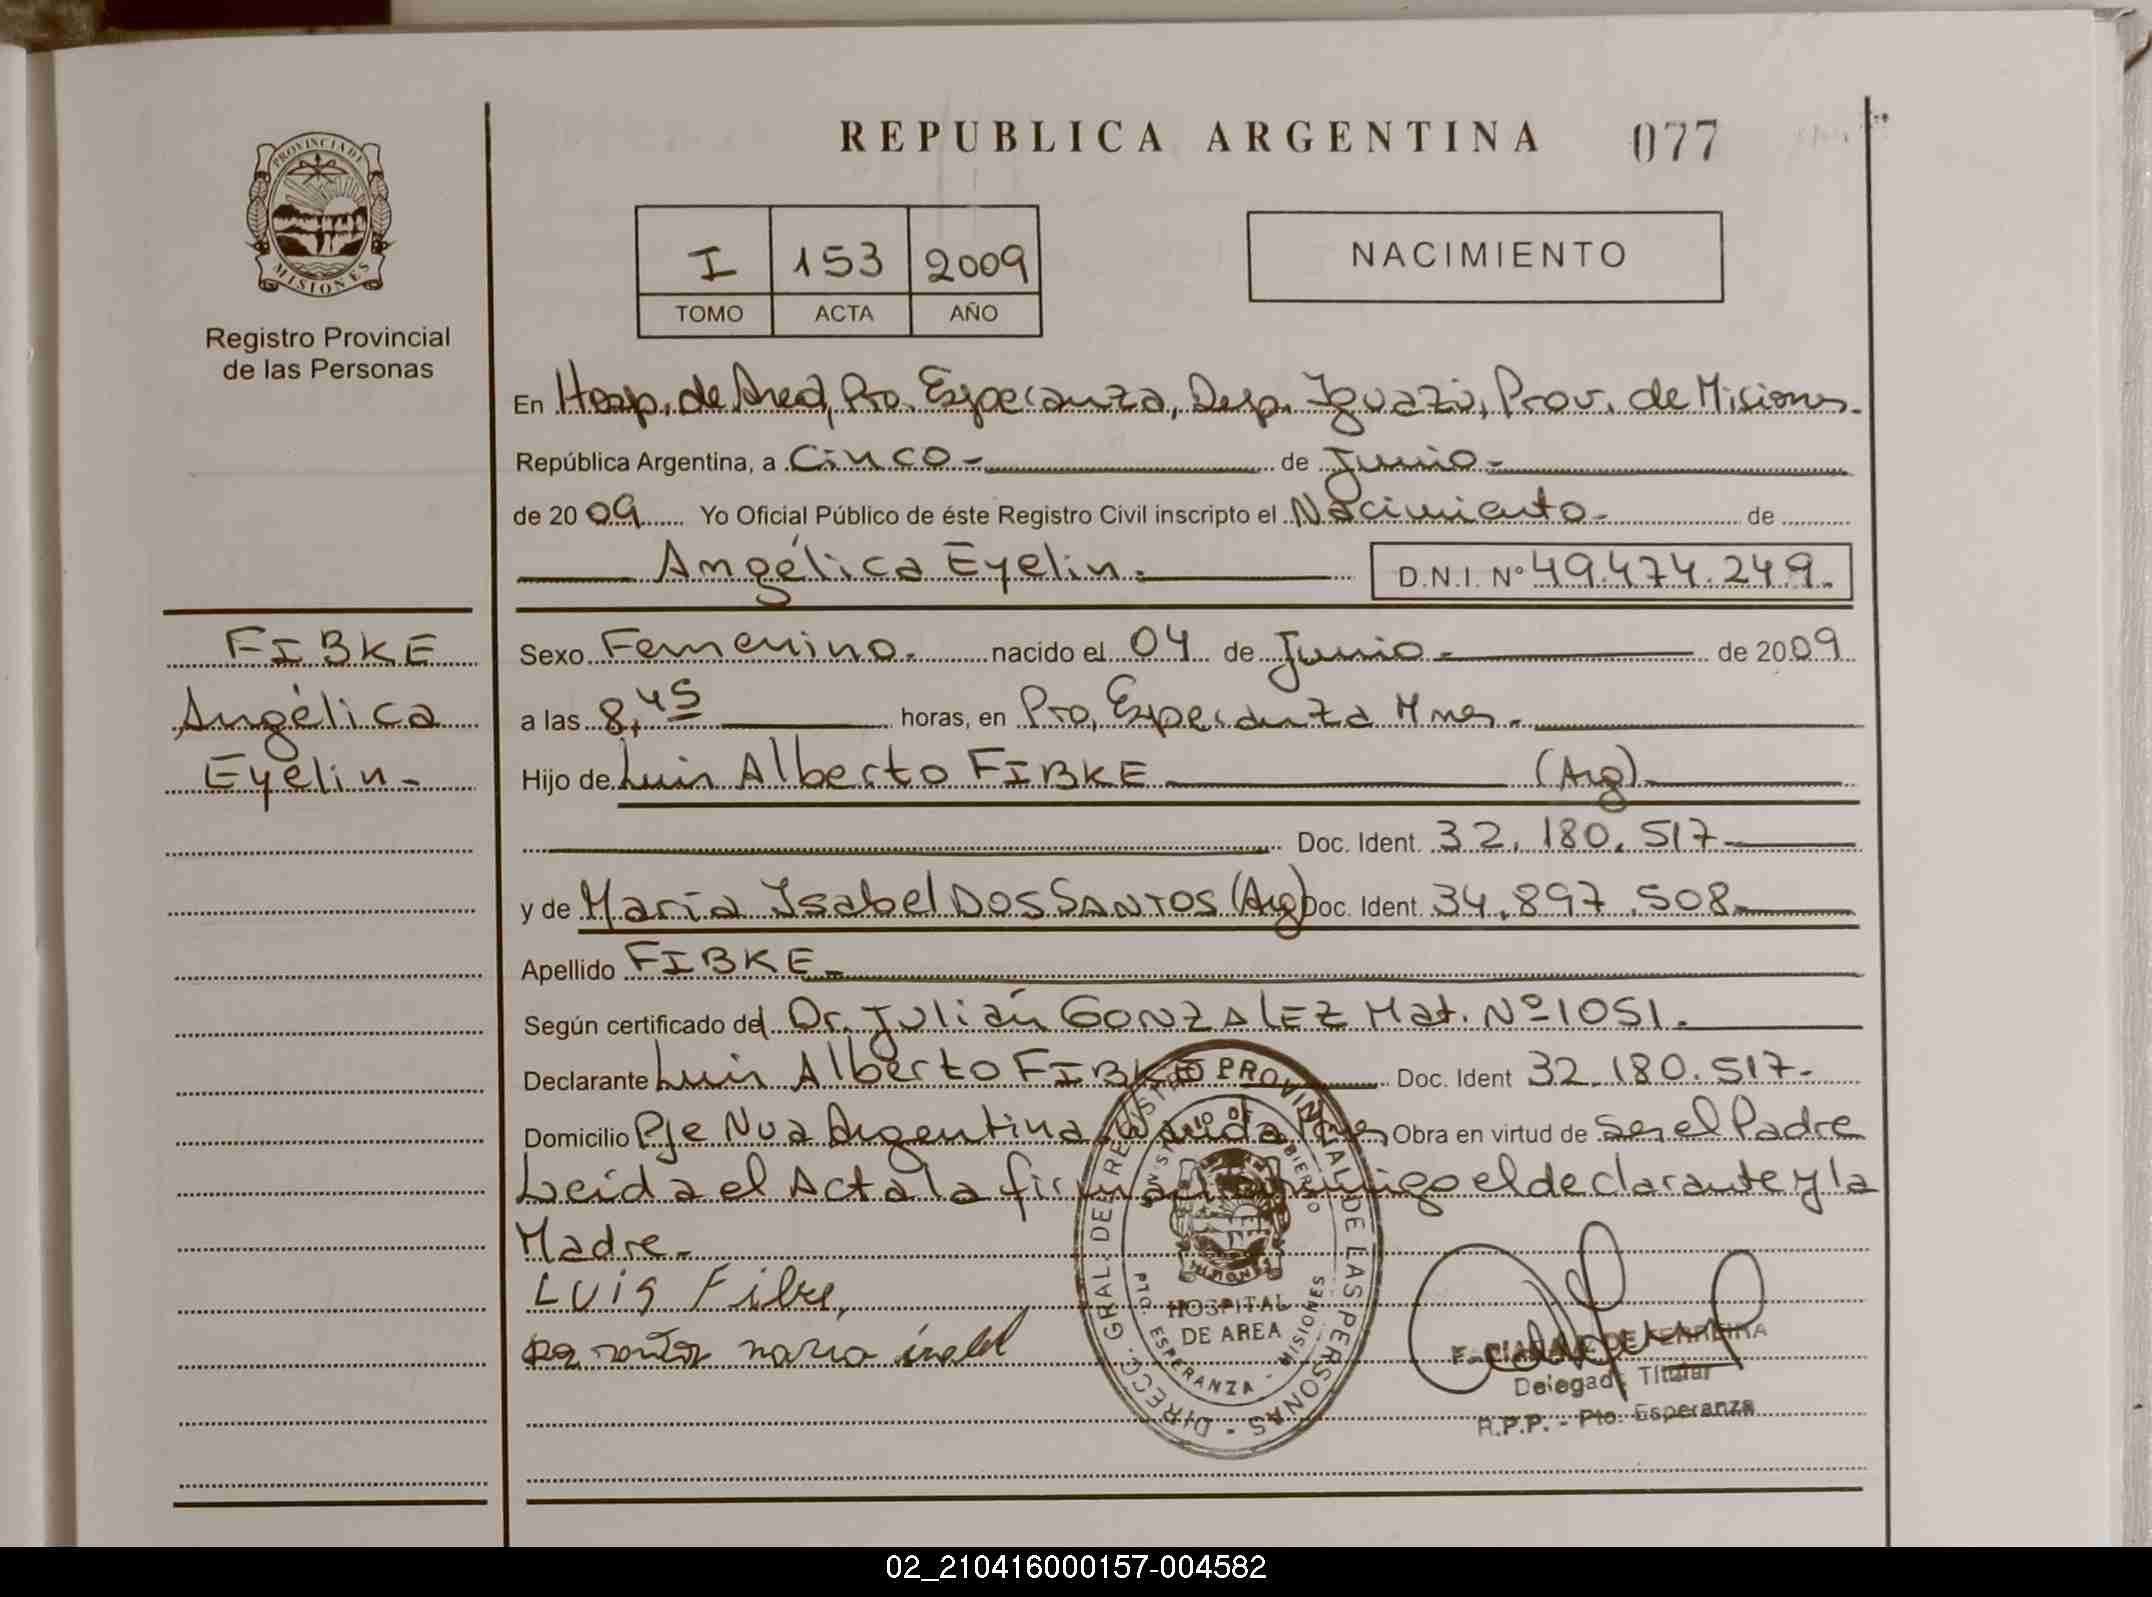 REPUBLICA ARGENTINA 077
PROVINCIA DE MISIONES
Registro Provincial
de las Personas
I 153 2009
TOMO ACTA AÑO
NACIMIENTO
En Hosp. de Area, Pto. Esperanza, Dep. Iguazú, Prov. de Misiones.
República Argentina, a Cinco- de Junio-
de 2009 Yo Oficial Público de éste Registro Civil inscripto el Nacimiento- de
Angélica Eyelin.
D.N.I. Nº 49.474.249.
FIBKE
Angélica
Eyelin-
Sexo Femenino. nacido el 04 de Junio- de 2009
a las 8,45 horas, en Pto. Esperanza Mnes.
Hijo de Luis Alberto FIBKE (Arg)
Doc. Ident. 32.180.517
y de María Isabel DOS SANTOS (Arg) Doc. Ident. 34.897.508-
Apellido FIBKE-
Según certificado del Dr. Julián GONZALEZ Mat. Nº 1051.
Declarante Luis Alberto FIBKE Doc. Ident 32.180.517-
Domicilio Pje Nva Argentina, Wanda Mnes Obra en virtud de ser el Padre
Leída el Acta la firman conmigo el declarante y la
Madre-
Luis
maria
DIRECC. GRAL. DE REGISTRO PROVINCIAL DE LAS PERSONAS
MINISTERIO DE GOBIERNO
HOSPITAL
DE AREA
PTO. ESPERANZA - MISIONES
DE FERREIRA
Delegada Titular
R.P.P. - Pto. Esperanza
02_210416000157-004582